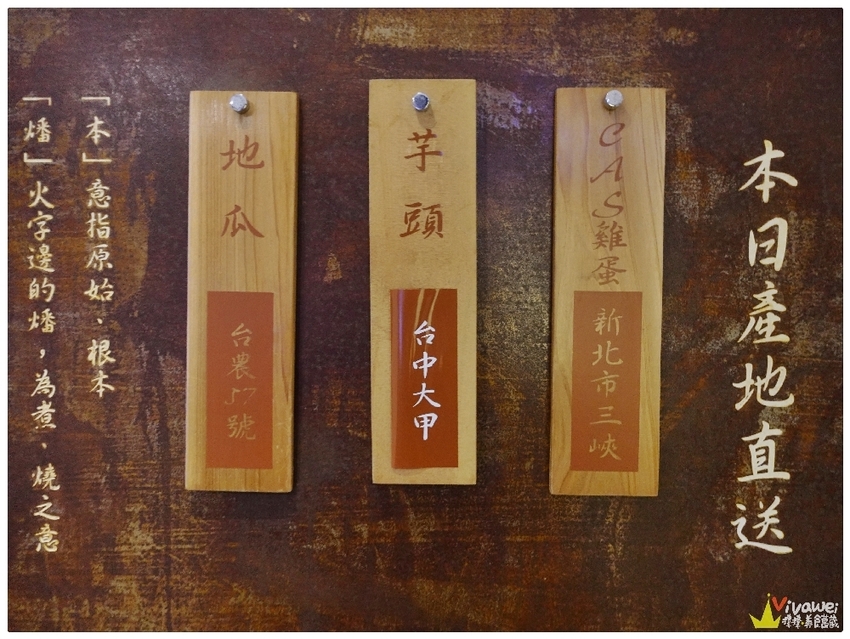 本日產地直送
CAS雞蛋
新北市三峽
芋頭
台中大甲
地瓜
台農57號
「本」意指原始、根本
「燔」火字邊的燔，為煮、燒之意
Vivawei